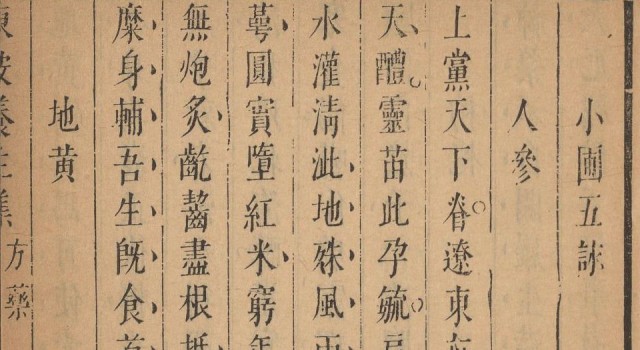 小圃五詠
人參
上黨天下脊遼東
天醴靈苗此孕毓
水灌清泚地殊風雨
萼圓實墮紅米窮年
無炮炙齕齧盡根
糜身輔吾生既食
地黃
坡養生集 方藥